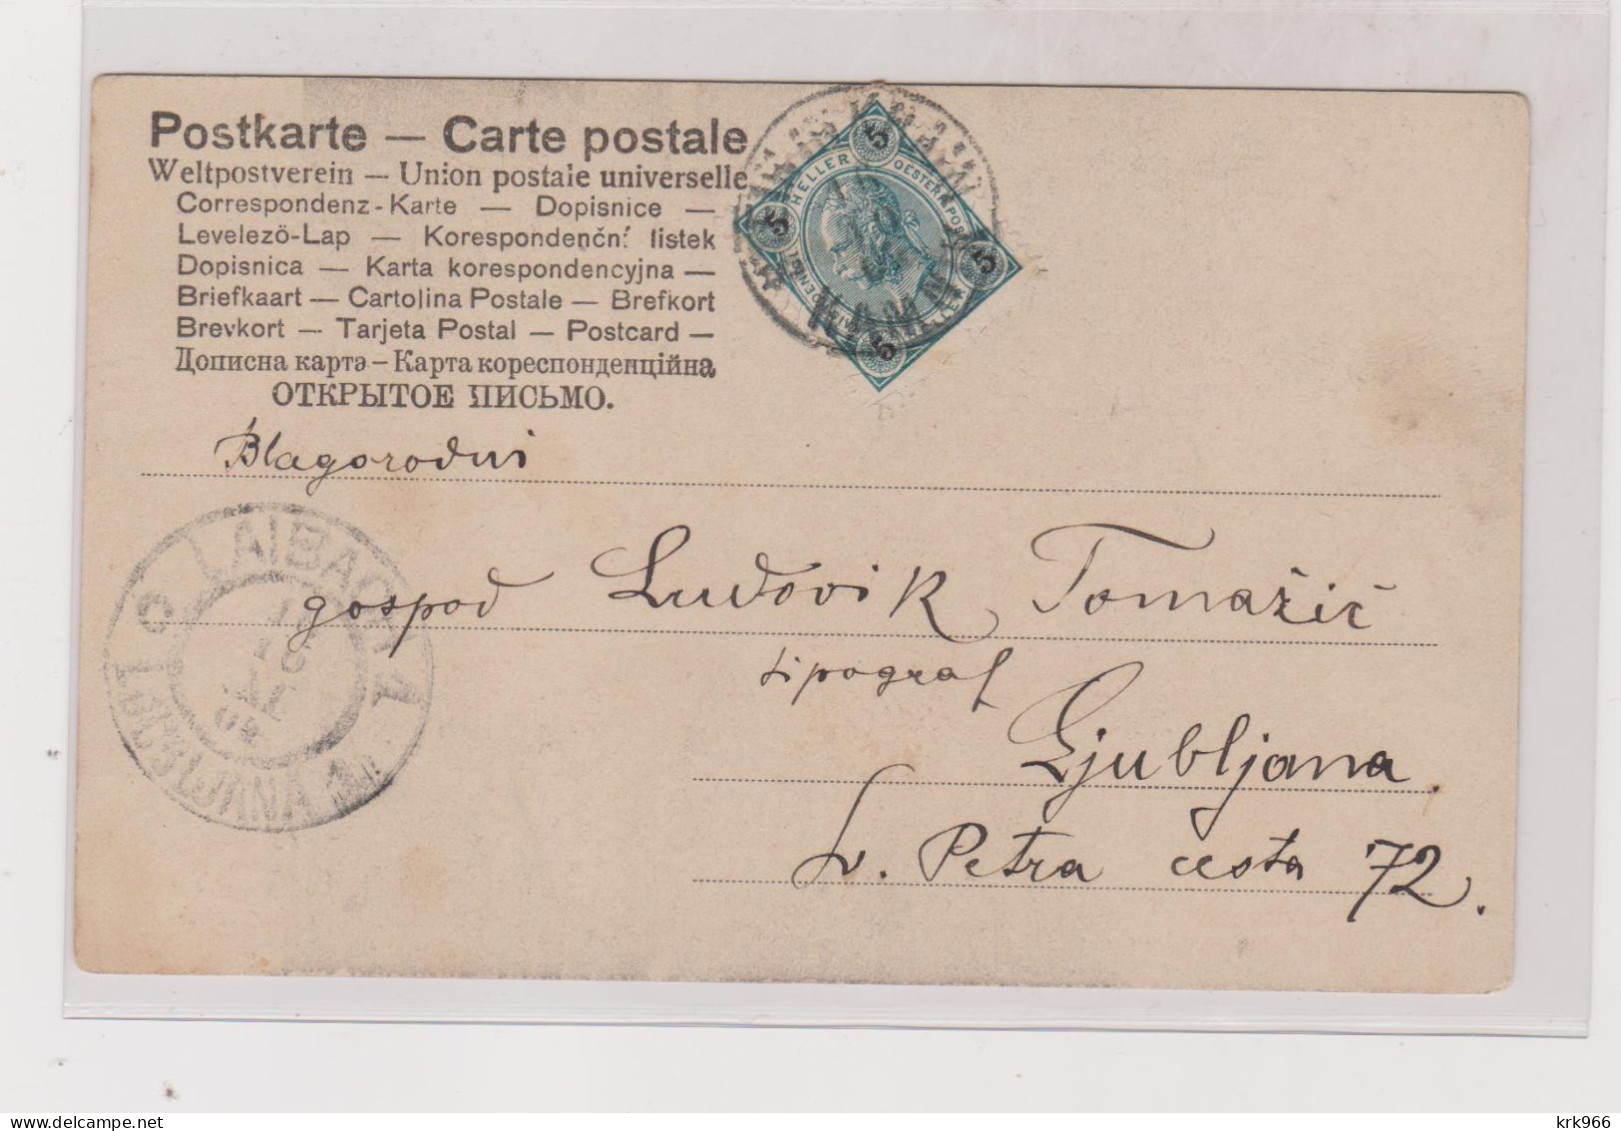 Postkarte — Carte postale
Weltpostverein — Union postale universelle
Correspondenz-Karte — Dopisnice —
Levelezö-Lap — Korespondenční listek
Dopisnica — Karta korespondencyjna —
Briefkaart — Cartolina Postale — Brefkort
Brevkort — Tarjeta Postal — Postcard —
Дописна карта — Карта кореспонденційна
ОТКРЫТОЕ ПИСЬМО.
5
5 HELLER OESTERR. POST 5
5
Blagorodni
LAIBACH 1
LJUBLJANA
gospod Ludovik Tomažič
tipograf
Ljubljana.
Sv. Petra cesta 72.
krk966